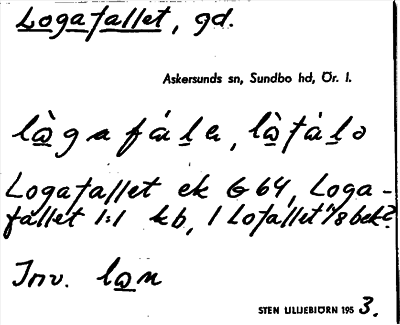 Logafallet, gd.
Askersunds sn, Sundbo hd, Ör. l.
là̱gafáḻa, là̱fáḻə
Logafallet ek G64, Loga-
fallet 1:1 kb, "Lofallet" ⅛ bek?
Inv. lo̱n
STEN LILJEBIÖRN 195 3.